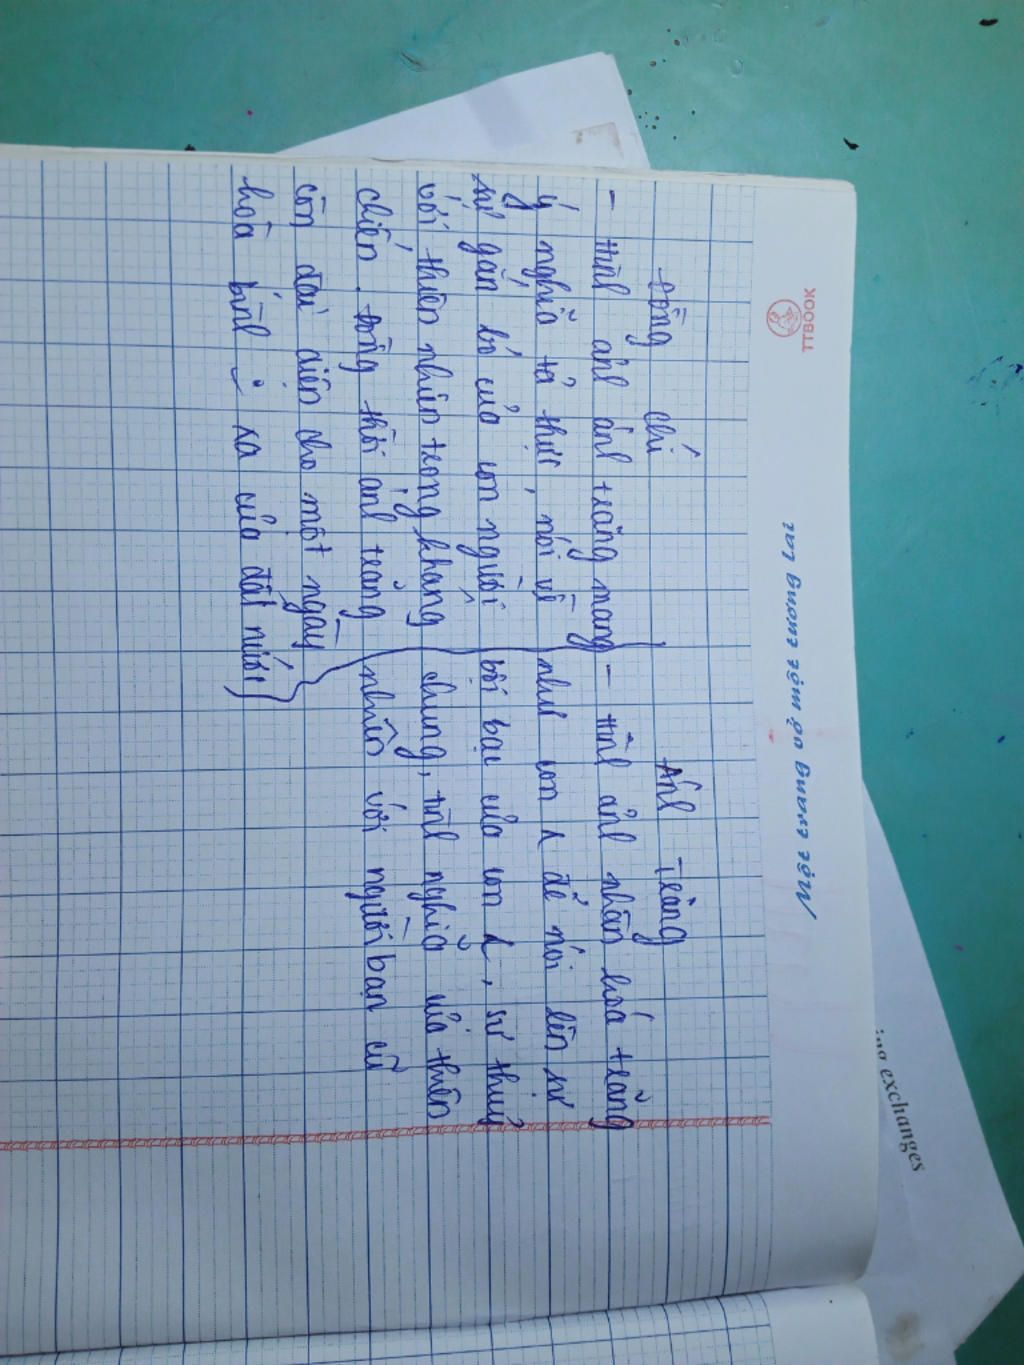 TTBOOK
Một trang vở một tương lai
Đồng chí
Ánh Trăng
- Hình ảnh ánh trăng mang
ý nghĩa tả thực, nói về
sự gắn bó của con người
với thiên nhiên trong kháng
chiến. Đồng thời ánh trăng
còn đại diện cho một ngày
hoà bình ở xa của đất nước
- Hình ảnh nhân hoá trăng
như con để nói lên sự
bội bạc của con, sự thuỷ
chung, tình nghĩa của thiên
nhiên với người bạn cũ
exchanges